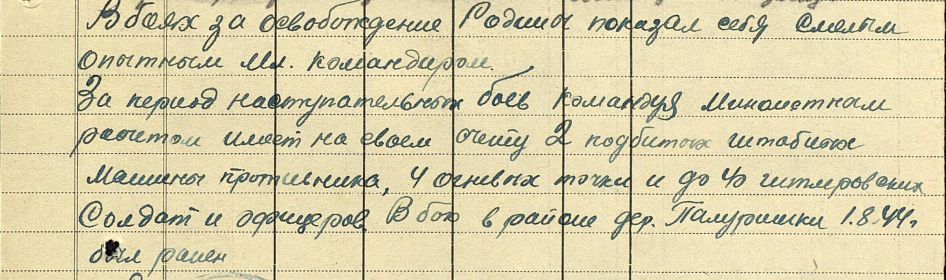 В боях за освобождение Родины показал себя смелым
опытным мл. командиром.
За период наступательных боев командуя минометным
расчетом имеет на своем счету 2 подбитых штабных
машины противника, 4 огневых точки и до 40 гитлеровских
солдат и офицеров. В бою в районе дер. 1.8.44г
был ранен